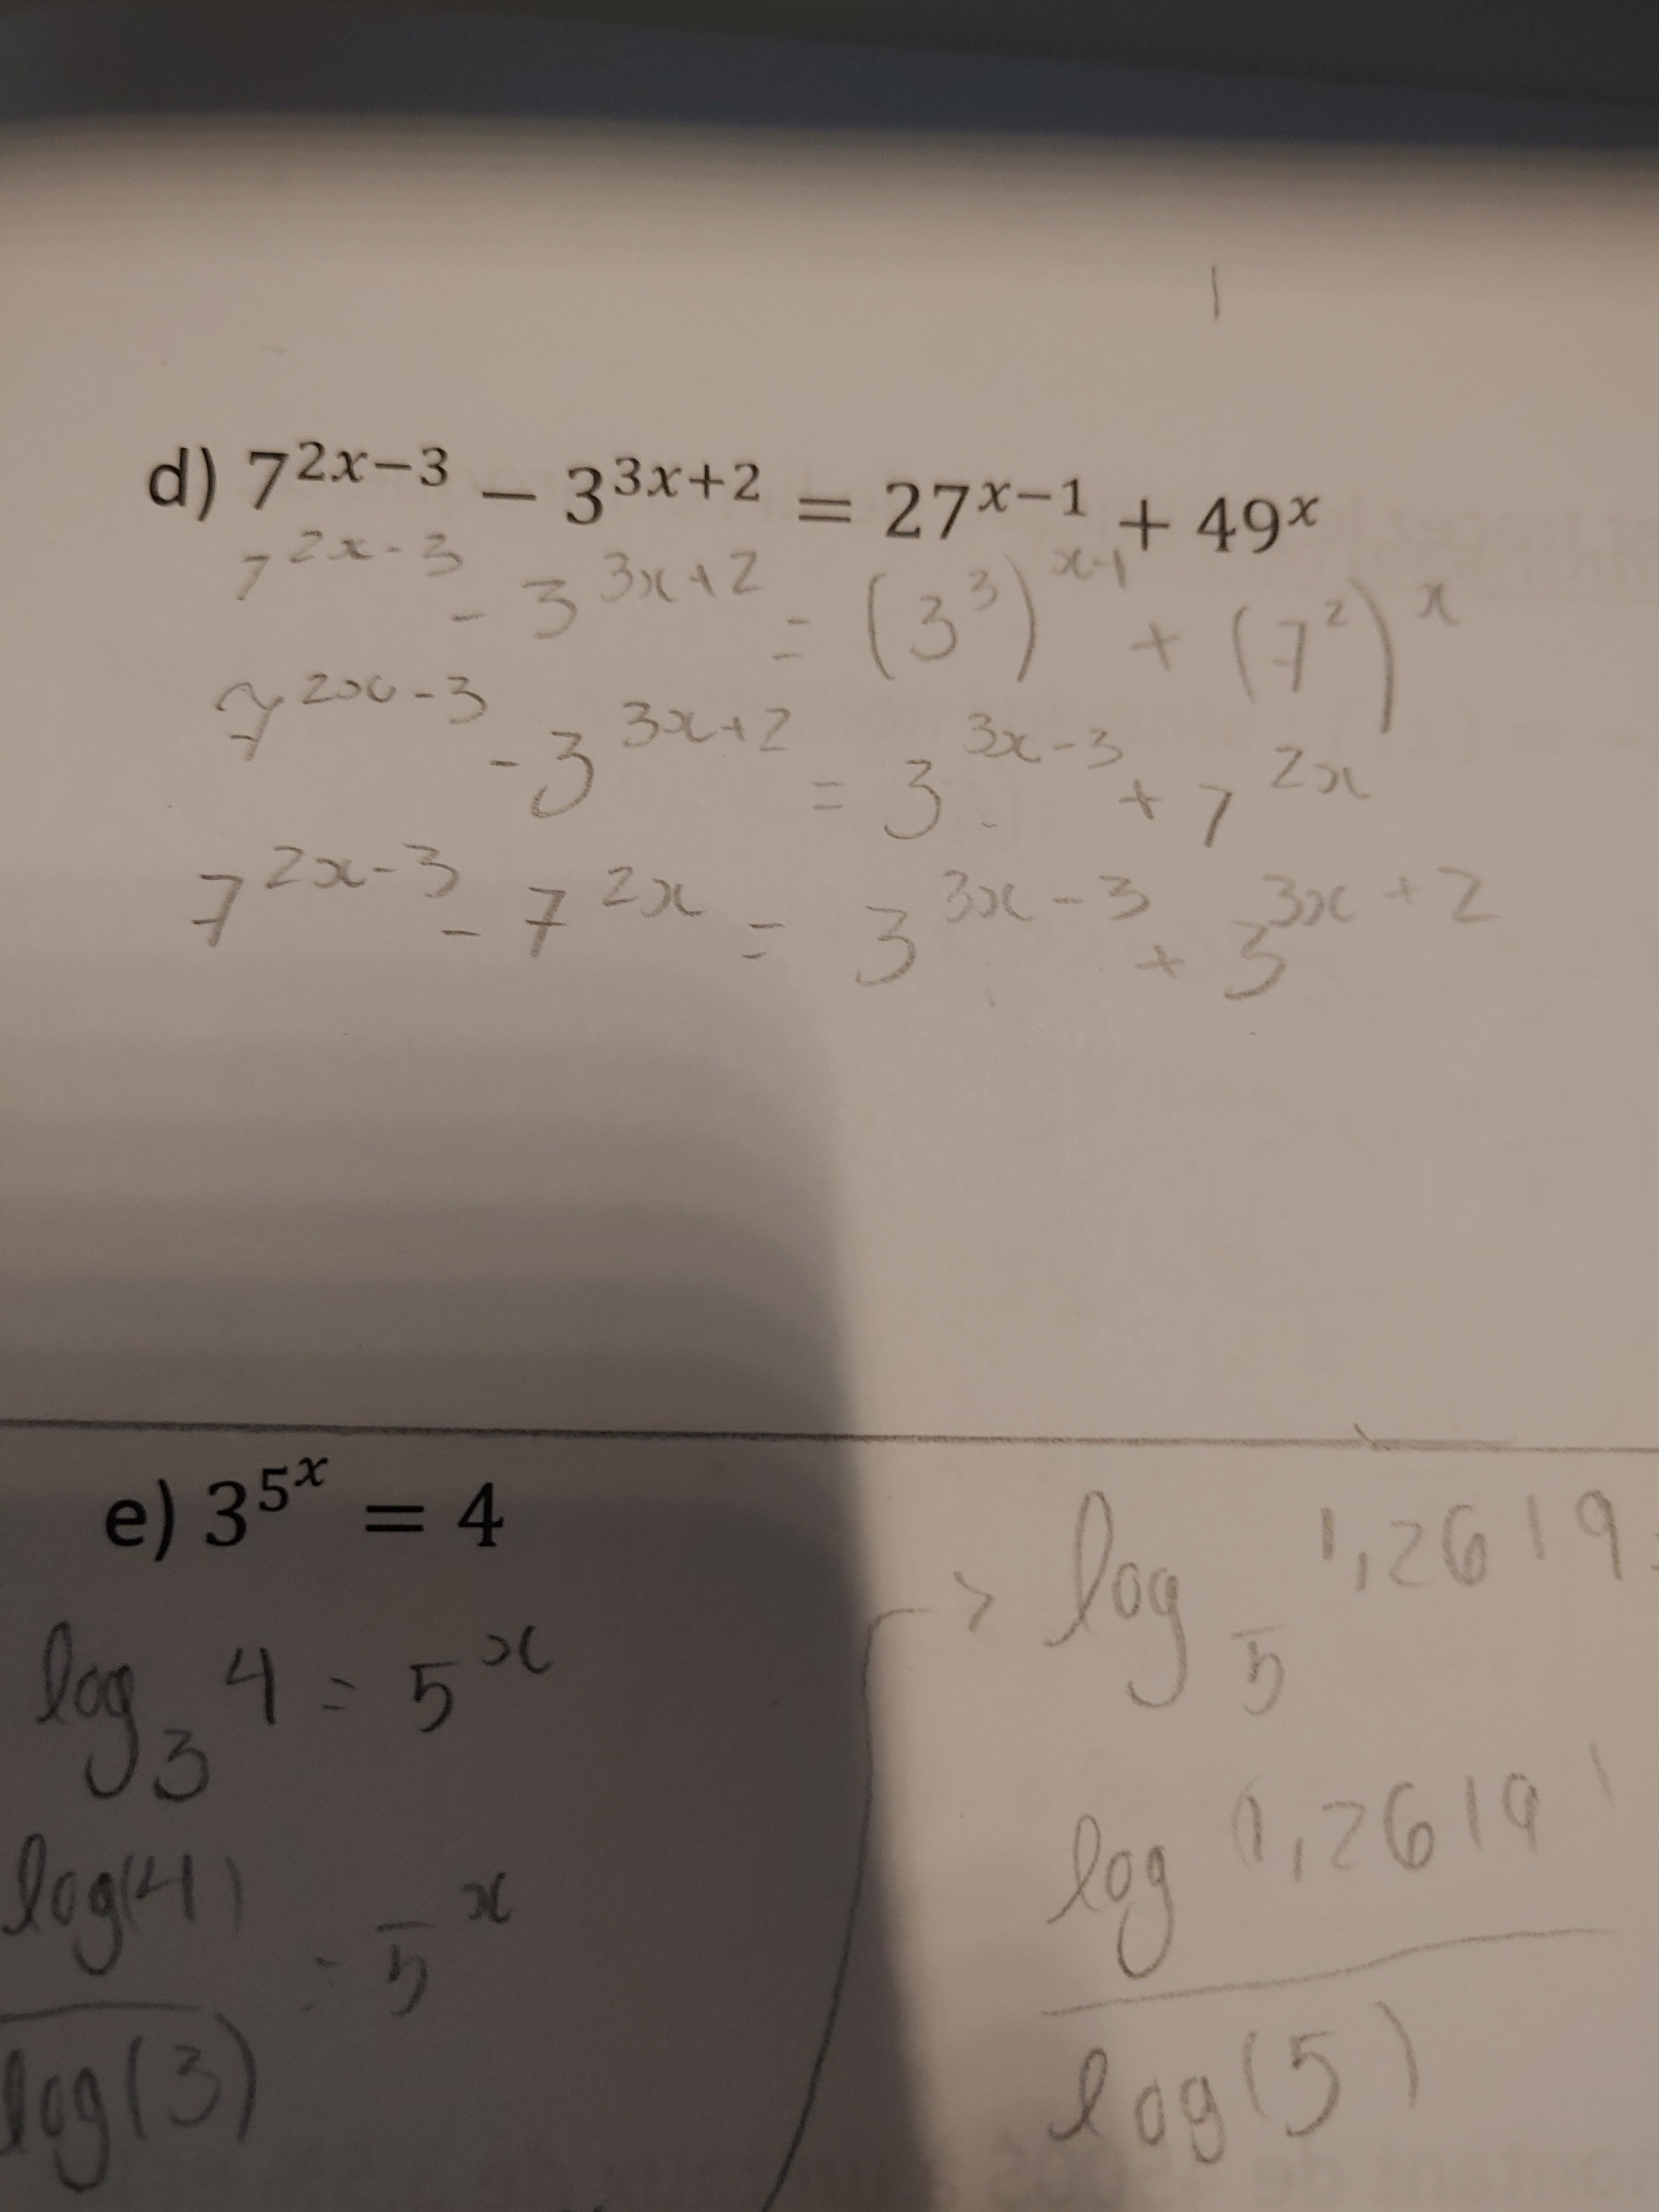 d) 7^{2x−3} − 3^{3x+2} = 27^{x−1} + 49^x
7^{2x-3} - 3^{3x+2} = (3^3)^{x-1} + (7^2)^x
7^{2x-3} - 3^{3x+2} = 3^{3x-3} + 7^{2x}
7^{2x-3} - 7^{2x} = 3^{3x-3} + 3^{3x+2}
e) 3^{5^x} = 4
log_3 4 = 5^x
log(4) / log(3) = 5^x
> log_5 1,2619
log 1,2619 / log(5)